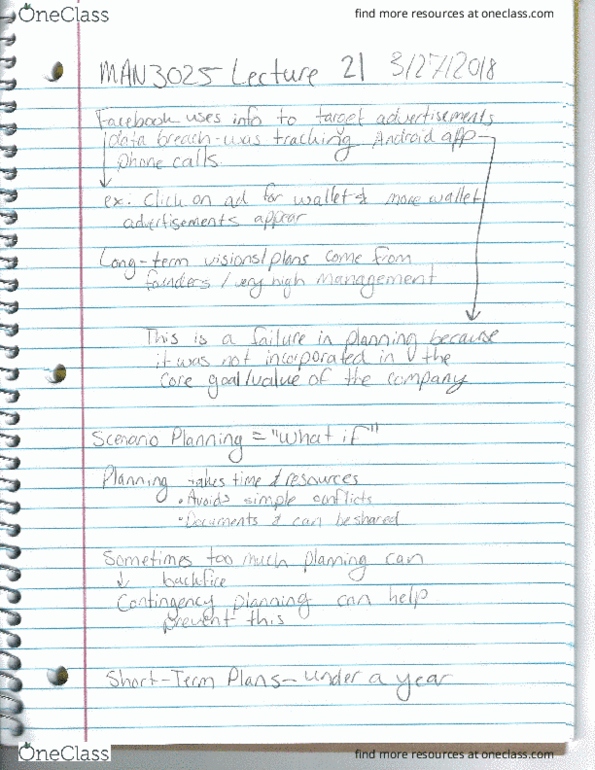 OneClass
find more resources at oneclass.com
MAN3025 Lecture 21 3/27/2018
Facebook uses info to target advertisements
data breach - was tracking Android app
phone calls
ex: Click on ad for wallet & more wallet
advertisements appear
Long-term visions/plans come from
founders / very high management
This is a failure in planning because
it was not incorporated in the
core goal/value of the company
Scenario Planning = "What if"
Planning - takes time & resources
• Avoids simple conflicts
• Documents & can be shared
Sometimes too much planning can
↓ backfire
Contingency planning can help
prevent this
Short-Term Plans - under a year
OneClass
find more resources at oneclass.com